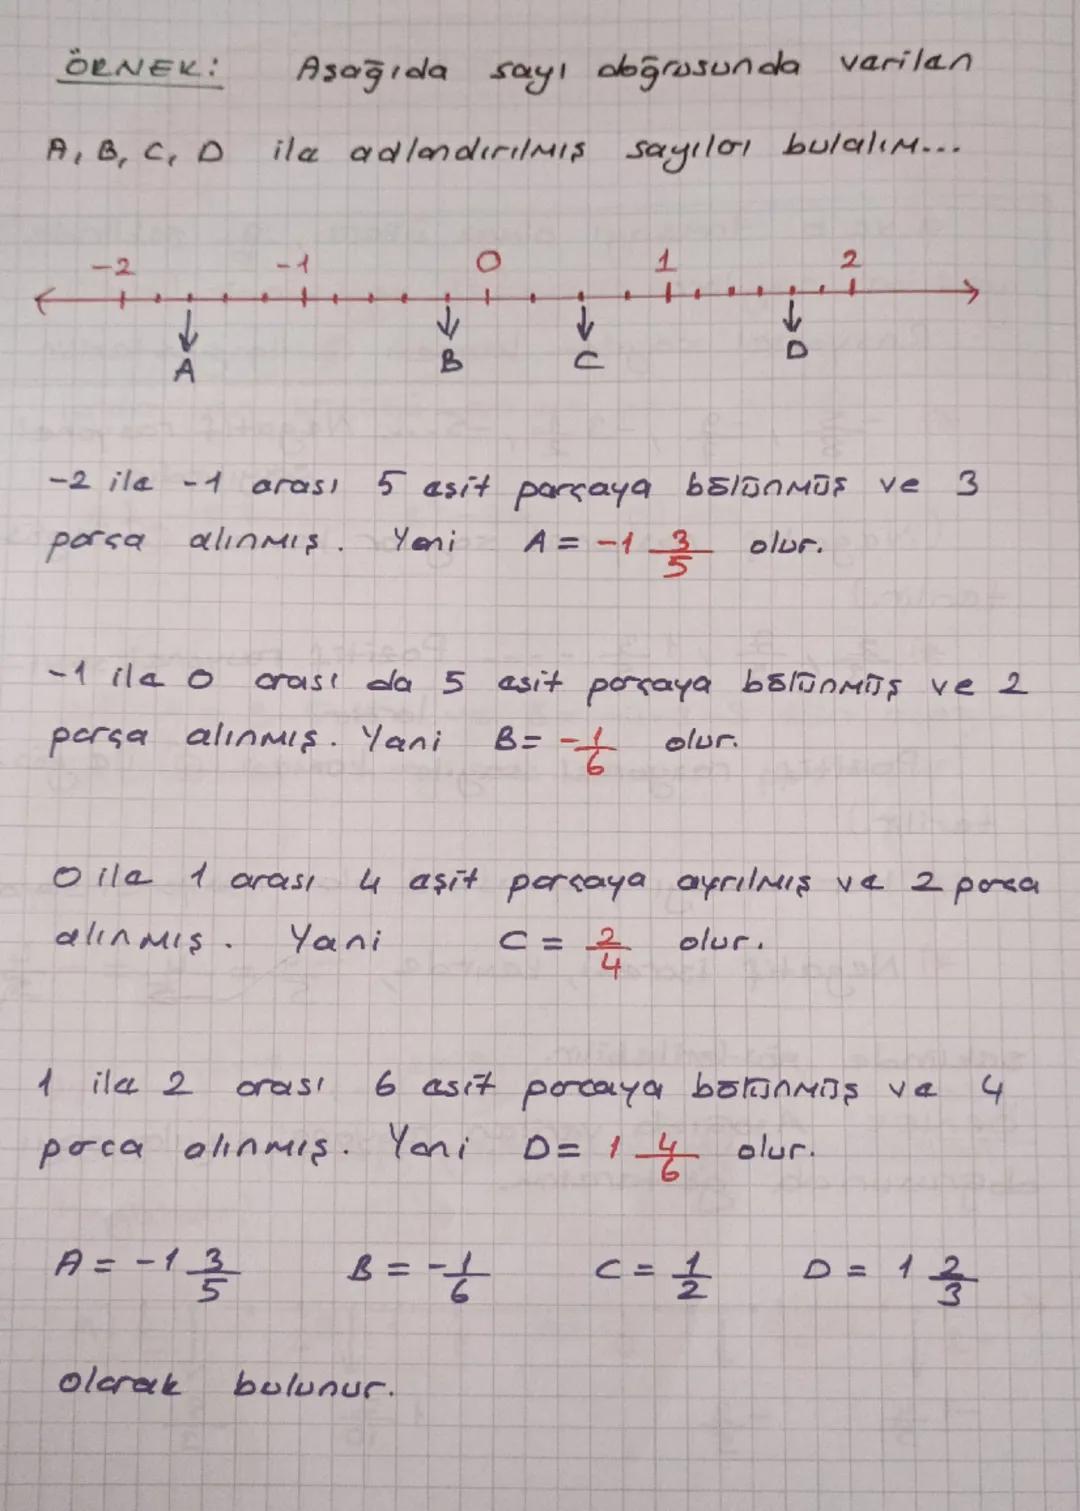 ÖRNEK: Aşağıda sayı doğrusunda verilen
A, B, C, D ile adlandırılmış sayıları bulalım...
-2 -1 0 1 2
A B C D
-2 ile -1 arası 5 eşit parçaya bölünmüş ve 3
parça alınmış. Yani A = -1 3/5 olur.
-1 ile 0 arası da 5 eşit parçaya bölünmüş ve 2
parça alınmış. Yani B = -1/6 olur.
0 ile 1 arası 4 eşit parçaya ayrılmış ve 2 parça
alınmış. Yani C = 2/4 olur.
1 ile 2 arası 6 eşit parcaya bölünmüş ve 4
parca alınmış. Yani D = 1 4/6 olur.
A = -1 3/5 B = -1/6 C = 1/2 D = 1 2/3
olarak bulunur.